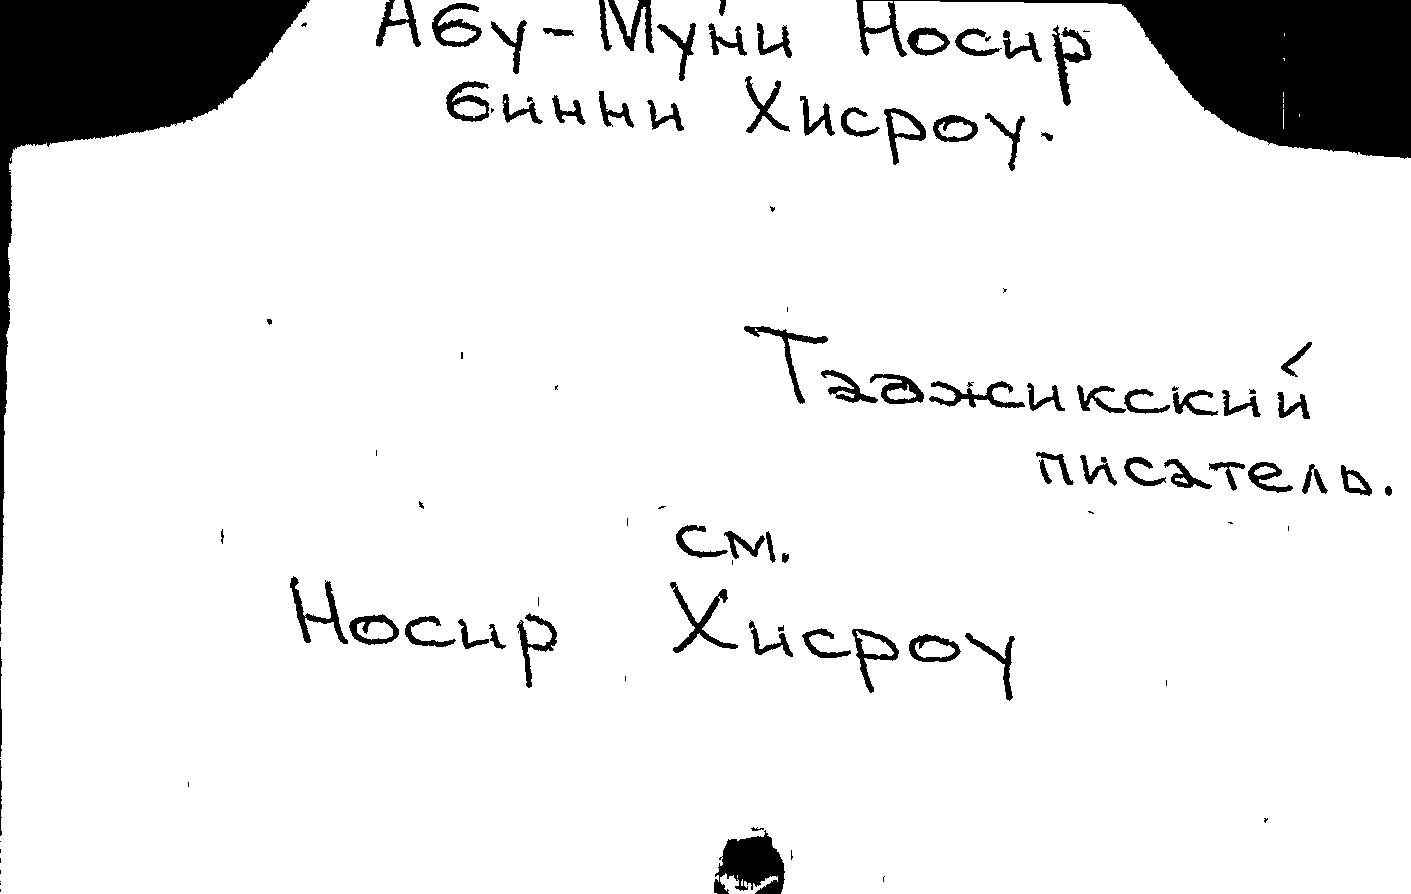 Абу-Муни Носир
бинни Хисроу.
Таджикский
писатель.
см.
Носир Хисроу